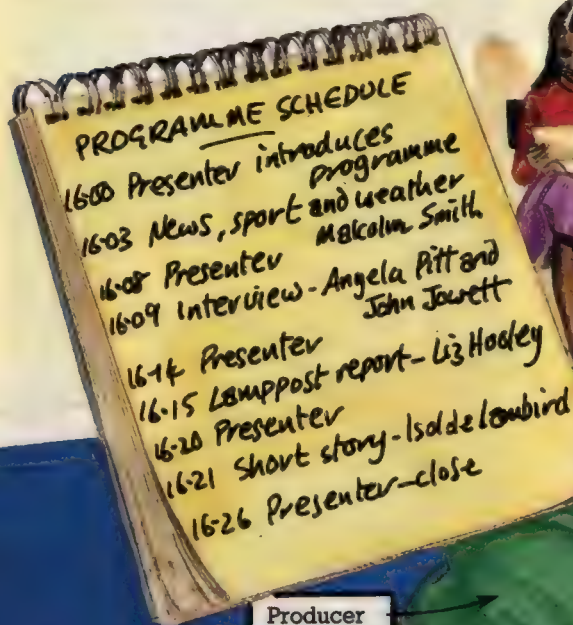 PROGRAMME SCHEDULE
16·00 Presenter introduces
programme
16·03 News, sport and weather
Malcolm Smith
16·08 Presenter
16·09 Interview - Angela Pitt and
John Jowett
16·14 Presenter
16·15 Lamppost report - Liz Hooley
16·20 Presenter
16·21 Short story - Isolde Lambird
16·26 Presenter - close
Producer